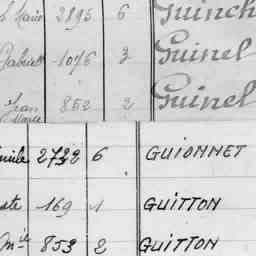 Marie 2895 6 Guinch
Gabriel 1076 3 Guinel
Jean Marie 852 2 Guinel
uile 2722 6 GUIONNET
ste 169 1 GUITTON
Mie 853 2 GUITTON